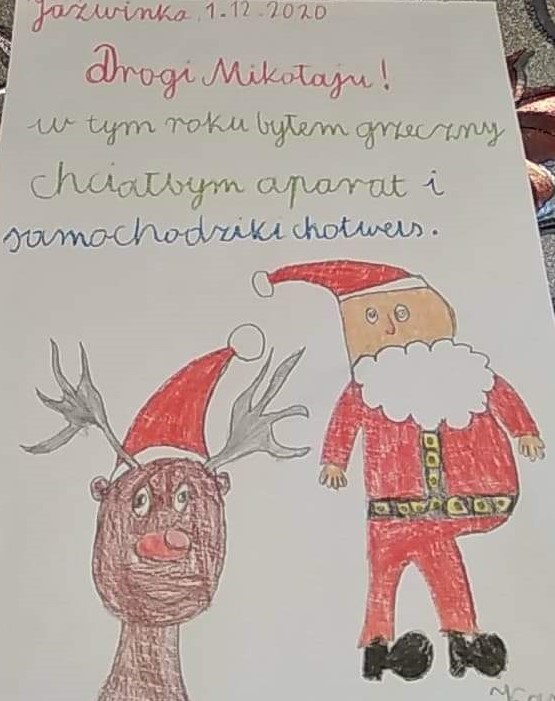 Jaźwinka, 1.12.2020
Drogi Mikołaju!
w tym roku byłem grzeczny
chciałbym aparat i
samochodziki chotweis.